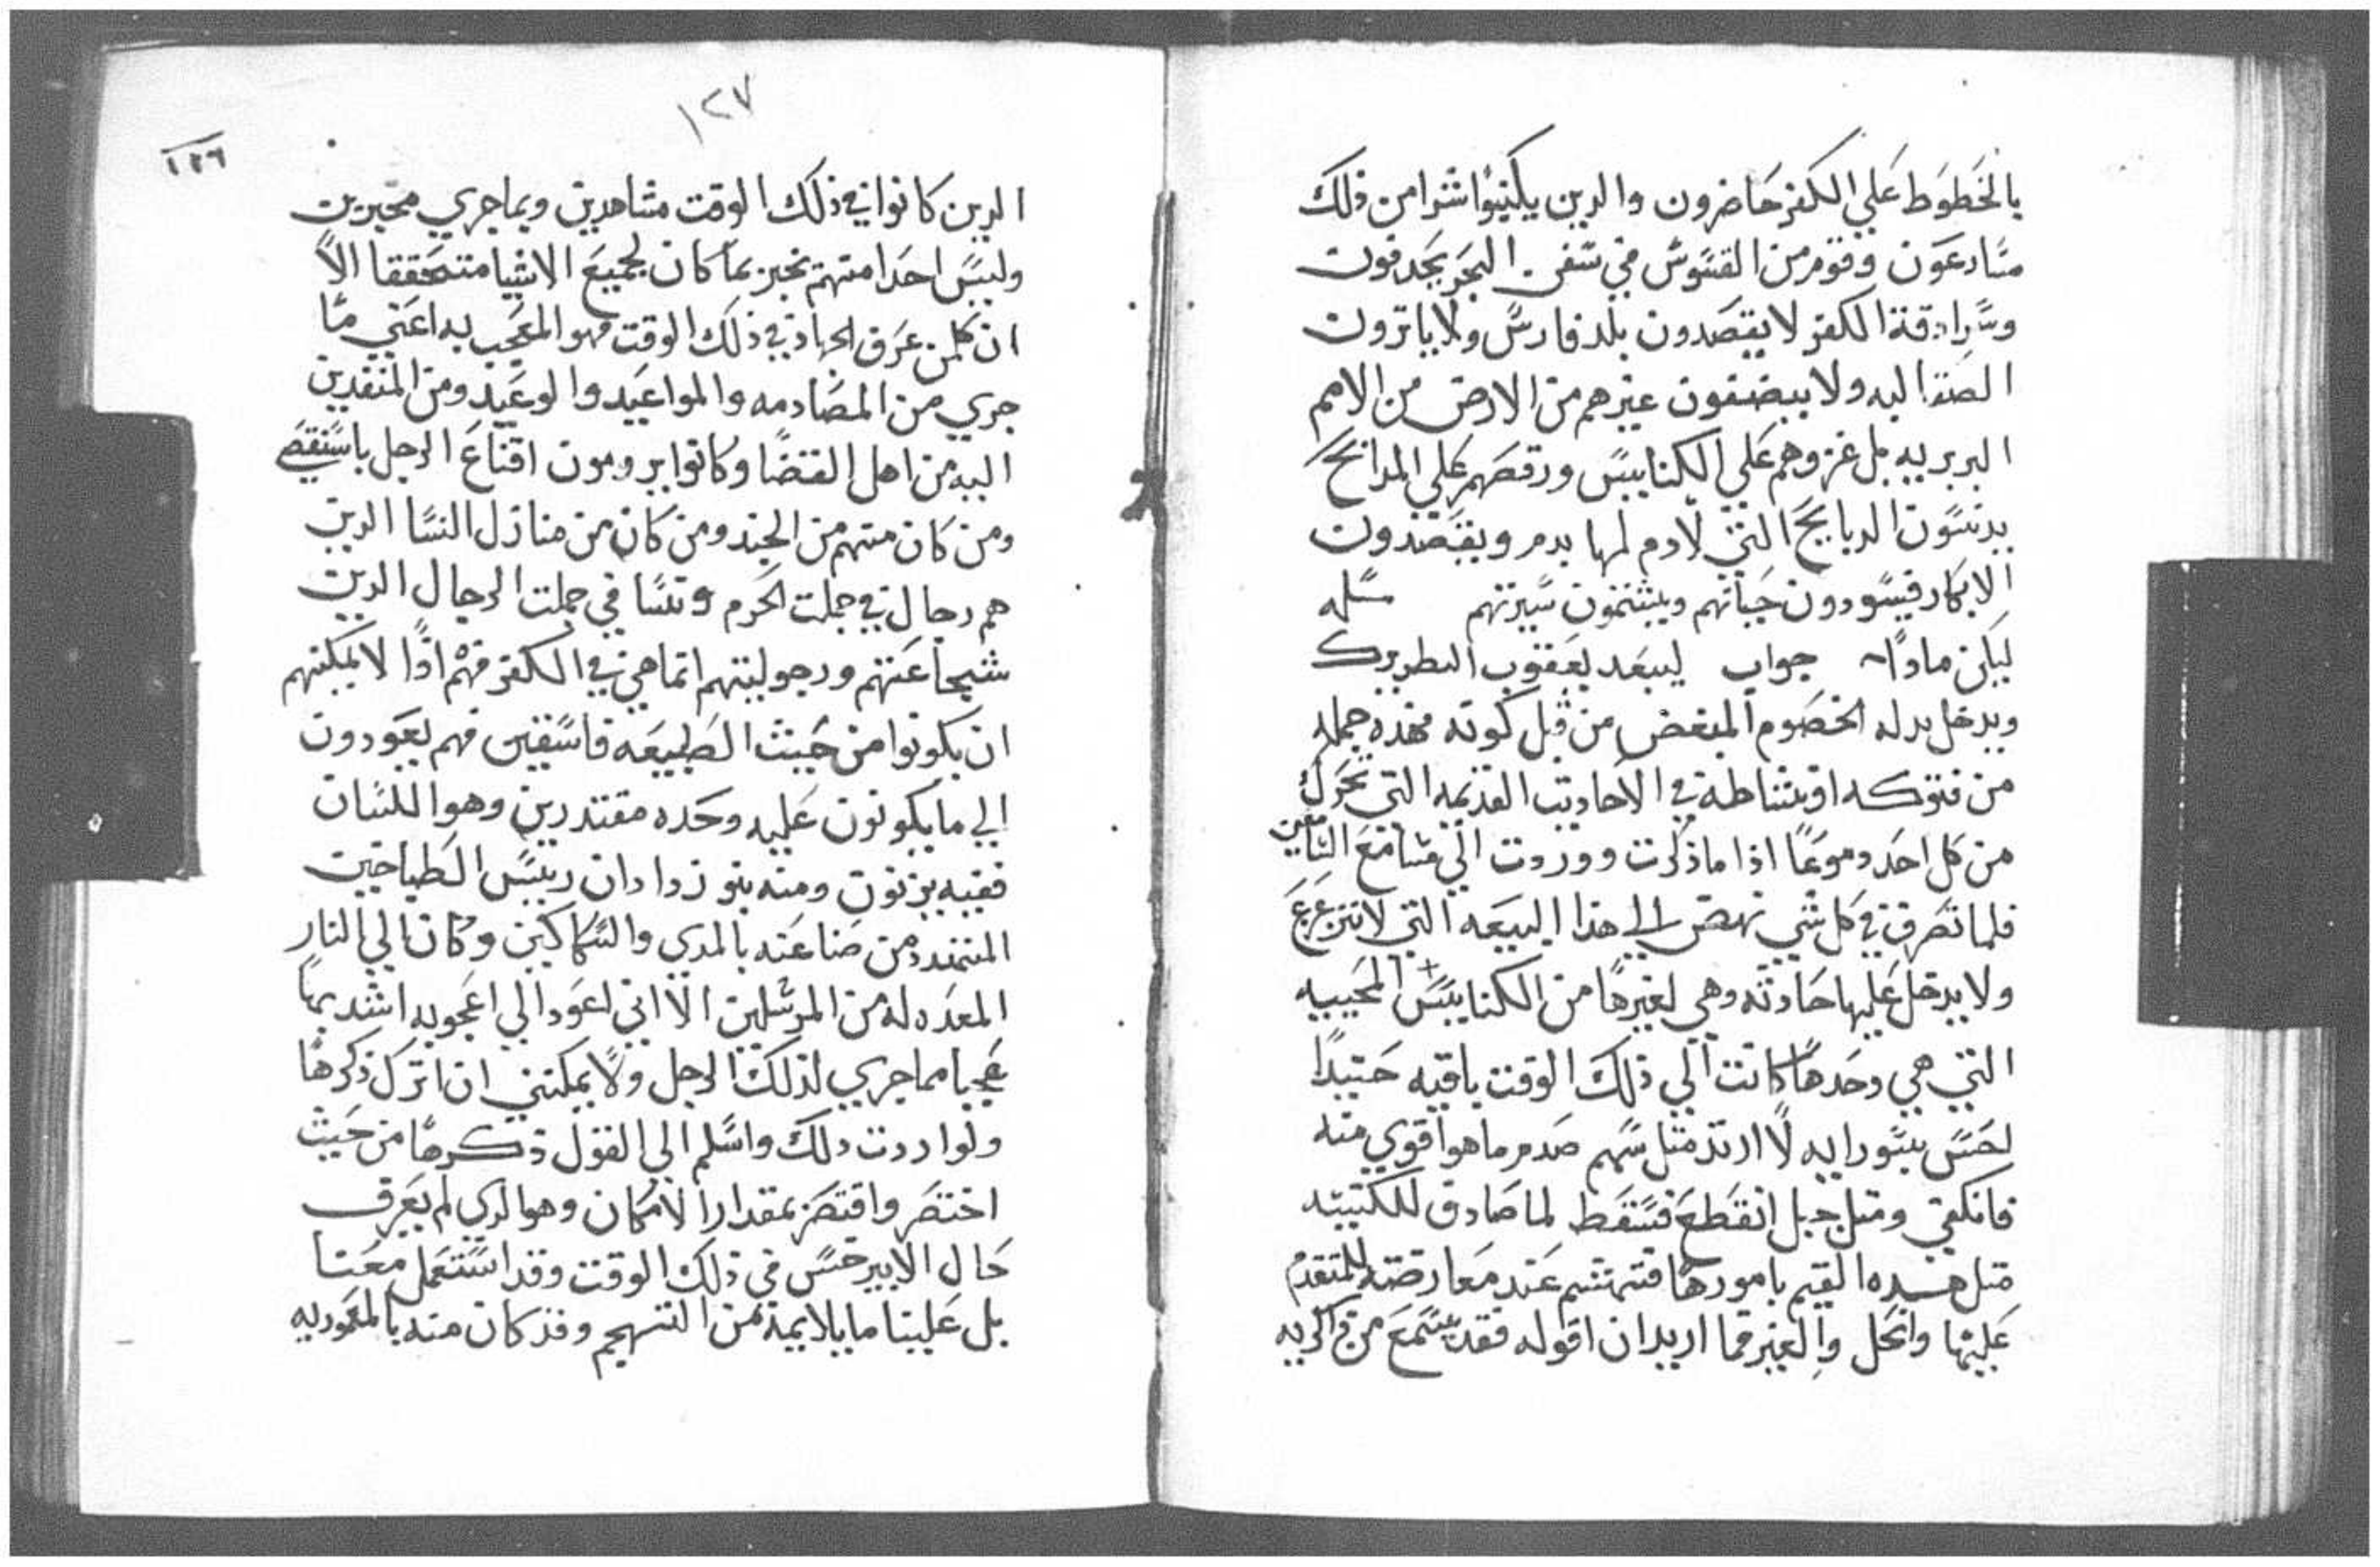 بالخطوط علي الكفر حاضرون والدين يكتبوا شرا من ذلك
مسارعون وقوم من القسوس في سفن البحر يجدفون
وسرادقة الكفر لا يقصدون بلد فارس ولا ياترون
الصقالبه ولا يبضفون غيرهم من الارض من الامم
البربريه بل غزوهم علي الكنايس ورقصهم علي المدابح
يدنسون الدبايح التي لا دم لها بدم ويفسدون
الابكار فيسودون حياتهم ويشتمون سيرتهم مسله
ليكن مادا جواب ليبعد يعقوب البطريرك
ويدخل بدله الخصوم المبغض من قبل كونه فهذه جمله
من فتوكه اونشاطه في الاحاديث القديمه التي تحرك
من كل احد دموعا اذا ما ذكرت ووردت الي مسامع التابعين
فلما تصرف في كل شي نهض الي هذا البيعه التي لا تتزعزع
ولا يدخل عليها حادثه وهي لغيرها من الكنايس المحييه
التي هي وحدها كانت الي ذلك الوقت باقيه حتيدا
لحس بسورايه لا ارتد مثل سهم صدم ما هو اقوي منه
فانكفي ومثل حبل انقطع فسقط لما صادف للكتيبه
مثل هذه القيم بامورها فتهشم عند معارضته للمتقدم
عليها وانحل والغير فما اريد ان اقوله فقد يسمع من اكريه
١٢٧
١٢٦
الدين كانوا في ذلك الوقت مشاهدين وبما جري مخبرين
وليس احدا منهم يخبر بما كان لجميع الاشيا متحققا الا
ان كلمن عرف الجهاد في ذلك الوقت فهو المعجب به اعني ما
جري من المصادمه والمواعيد والوعيد ومن المنفدين
اليه من اهل القضا وكانوا يرومون اقناع الرجل باستقصي
ومن كان منهم من الجند ومن كان من منازل النسا الدين
هم رجال في جملت الحرم ونسا في جملت الرجال الدين
شجاعتهم ورجوليتهم انما هي في الكفر فهم ادا لا يمكنهم
ان يكونوا من حيث الطبيعه فاسقين فهم يعودون
الي ما يكونون عليه وحده مقتدرين وهو اللسان
ففيه يزنون ومنه بنوزادان رييس الطباخين
المتمند من صناعته بالمدي والسكاكين وكان الي النار
المعده له من المرسلين الا اني اعود الي اعجوبه اشد بها
عجبا مما جري لذلك الرجل ولا يمكنني ان اترك ذكرها
ولو اردت دلك واسلم الي القول ذكرها من حيث
اختصر واقتصر بمقدار الامكان وهو الدي لم يعرف
حال الابير حس في ذلك الوقت وقد استعمل معنا
بل علينا ما يلايمه من التهجم وقد كان منه بالمعموديه